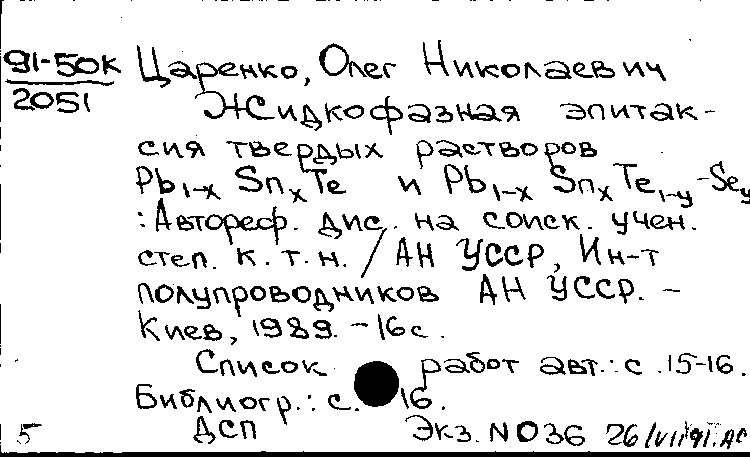 91-50к Царенко, Олег Николаевич
2051 Жидкофазная эпитак-
сия твердых растворов
Pb1-x SnxTe и Pb1-x SnxTe1-y-Sey
: Автореф. дис. на соиск. учен.
степ. к.т.н. / АН УССР, Ин-т
полупроводников АН УССР. -
Киев, 1989. - 16с.
Список работ авт.: с.15-16.
Библиогр.: с. 16.
5 ДСП Экз. N036 26/VI/91.